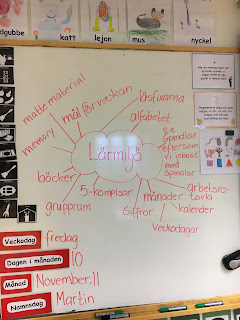 katt
lejon
mus
nyckel
mattematerial
mål för veckan
läsfixarna
memory
alfabetet
Lärmiljö
t.ex
spindlar
eftersom
vi jobbat
med
spindlar
böcker
5-kompisar
grupprum
månader
siffror
arbetsro-
tavla
kalender
veckodagar
Veckodag
fredag
Dagen i månaden
10
Månad
November.11
Namnsdag
Martin